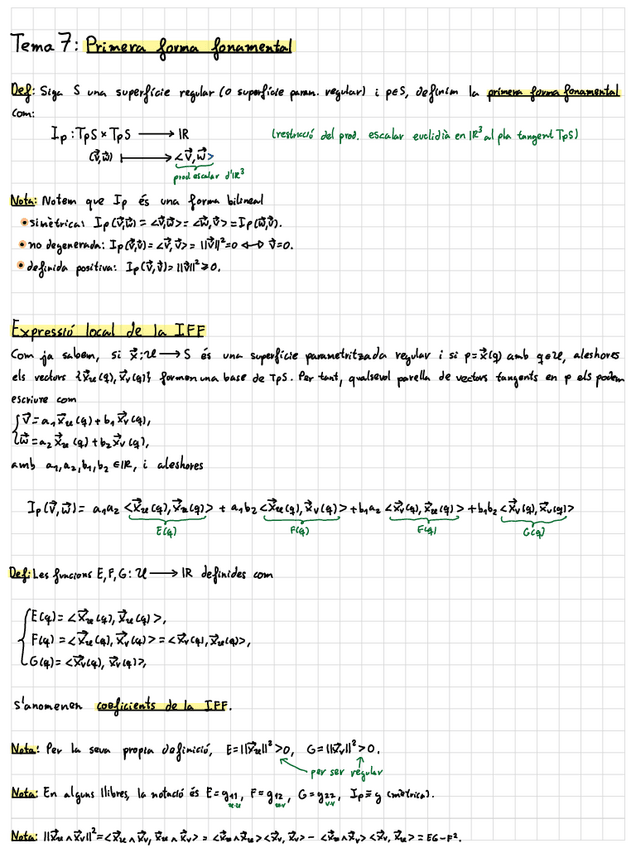 Tema 7: Primera forma fonamental
Def: Siga S una superfície regular (o superfície param. regular) i p∈S, definim la primera forma fonamental
com:
Ip : TpS × TpS ⟶ IR (restricció del prod. escalar euclidià en IR³ al pla tangent TpS)
(v⃗,w⃗) ⟼ <v⃗,w⃗>
prod escalar d'IR³
Nota: Notem que Ip és una forma bilineal
• simètrica: Ip(v⃗,w⃗) = <v⃗,w⃗> = <w⃗,v⃗> = Ip(w⃗,v⃗).
• no degenerada: Ip(v⃗,v⃗) = <v⃗,v⃗> = ||v⃗||² = 0 ⟷ v⃗=0.
• definida positiva: Ip(v⃗,v⃗) = ||v⃗||² ≥ 0.
Expressió local de la IFF
Com ja sabem, si x⃗: U ⟶ S és una superfície parametritzada regular i si p = x⃗(q) amb q∈U, aleshores
els vectors {x⃗u(q), x⃗v(q)} formen una base de TpS. Per tant, qualsevol parella de vectors tangents en p els podem
escriure com
{ v⃗ = a₁x⃗u(q) + b₁x⃗v(q),
w⃗ = a₂x⃗u(q) + b₂x⃗v(q),
amb a₁,a₂,b₁,b₂ ∈ IR, i aleshores
Ip(v⃗,w⃗) = a₁a₂ <x⃗u(q), x⃗u(q)> + a₁b₂ <x⃗u(q), x⃗v(q)> + b₁a₂ <x⃗v(q), x⃗u(q)> + b₁b₂ <x⃗v(q), x⃗v(q)>
E(q) F(q) F(q) G(q)
Def: Les funcions E,F,G: U ⟶ IR definides com
{ E(q) = <x⃗u(q), x⃗u(q)>,
F(q) = <x⃗u(q), x⃗v(q)> = <x⃗v(q), x⃗u(q)>,
G(q) = <x⃗v(q), x⃗v(q)>,
s'anomenen coeficients de la IFF.
Nota: Per la seva propia definició, E = ||x⃗u||² > 0, G = ||x⃗v||² > 0.
per ser regular
Nota: En alguns llibres, la notació és E = g₁₁, F = g₁₂, G = g₂₂, Ip ≡ g (mètrica).
uu uv vv
Nota: ||x⃗u ∧ x⃗v||² = <x⃗u ∧ x⃗v, x⃗u ∧ x⃗v> = <x⃗u, x⃗u><x⃗v, x⃗v> - <x⃗u, x⃗v><x⃗v, x⃗u> = EG - F².